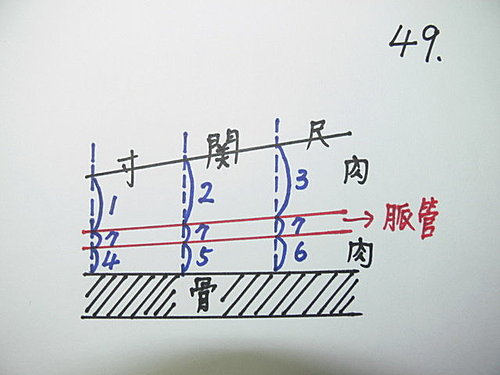 49.
寸 關 尺
1 2 3 肉
7 7 7 脈管
4 5 6 肉
骨